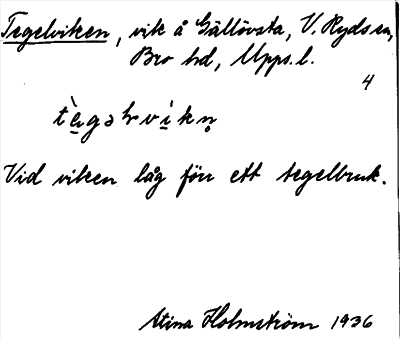 Tegelviken, vik å Gällövsta, V. Ryds sn,
Bro hd, Upps. l.
4
Vid viken låg förr ett tegelbruk.
Stina Holmström 1936